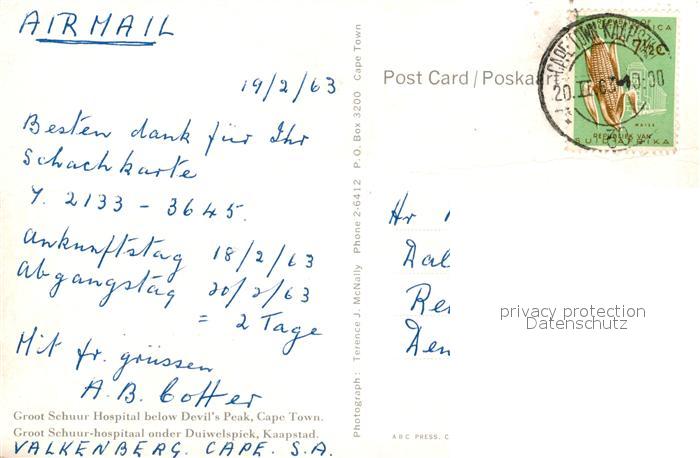 AIRMAIL
19/2/63
Besten dank für Ihr
Schachkarte
Y. 2133 - 3645.
Ankunftstag 18/2/63
Abgangstag 20/2/63
= 2 Tage
Mit fr. grüssen
A.B. Cotter
Groot Schuur Hospital below Devil's Peak, Cape Town.
Groot Schuur-hospitaal onder Duiwelspiek, Kaapstad.
VALKENBERG. CAPE. S.A.
Photograph: Terence J. McNally Phone 2-6412 P.O. Box 3200 Cape Town
Post Card / Poskaart
7½C
MAIZE
REPUBLIEK VAN
SUID-AFRIKA
CAPE TOWN KAAPSTAD
20. II 63 -10.00
Hr
Dal
Re
Den
privacy protection
Datenschutz
ABC PRESS. C